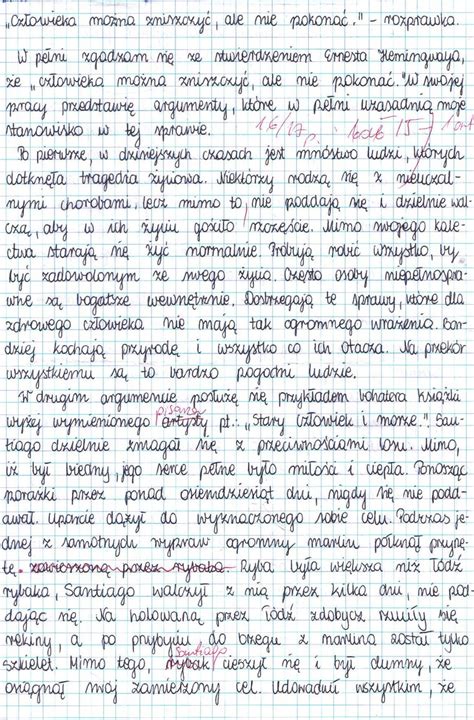 „Człowieka można zniszczyć, ale nie pokonać." - rozprawka.
W pełni zgadzam się ze stwierdzeniem Ernesta Hemingwaya,
że „człowieka można zniszczyć, ale nie pokonać." W swojej
pracy przedstawię argumenty, które w pełni uzasadnią moje
stanowisko w tej sprawie. 16/17 p.
Po pierwsze, w dzisiejszych czasach jest mnóstwo ludzi, których
dotknęła tragedia życiowa. Niektórzy rodzą się z nieuczal-
nymi chorobami, lecz mimo to, nie poddają się i dzielnie wal-
czą, aby w ich życiu gościło szczęście. Mimo swojego kale-
ctwa starają się żyć normalnie. Próbują robić wszystko, by
być zadowolonym ze swego życia. Często osoby niepełnospra-
wne są bogatsze wewnętrznie. Dostrzegają te sprawy, które dla
zdrowego człowieka nie mają tak ogromnego wrażenia. Bar-
dziej kochają przyrodę i wszystko co ich otacza. Na przekór
wszystkiemu są to bardzo pogodni ludzie.
W drugim argumencie posłużę się przykładem bohatera książki
pisarza
wyżej wymienionego artysty pt.: „Stary człowiek i morze". San-
tiago dzielnie zmagał się z przeciwnościami losu. Mimo,
iż był biedny, jego serce pełne było miłości i ciepła. Ponosząc
porażki przez ponad osiemdziesiąt dni, nigdy się nie podd-
awał. Uparcie dążył do wyznaczonego sobie celu. Podczas je-
dnej z samotnych wypraw ogromny marlin połknął przynę-
tę. zawieszoną przez rybaka. Ryba była większa niż łódź
rybaka, Santiago walczył z nią przez kilka dni, nie pod-
dając się. Na holowaną przez łódź zdobycz rzuciły się
rekiny, a po przybyciu do brzegu z marlina został tylko
Santiago
szkielet. Mimo tego, rybak cieszył się i był dumny, że
osiągnął swój zamierzony cel. Udowadnił wszystkim, że